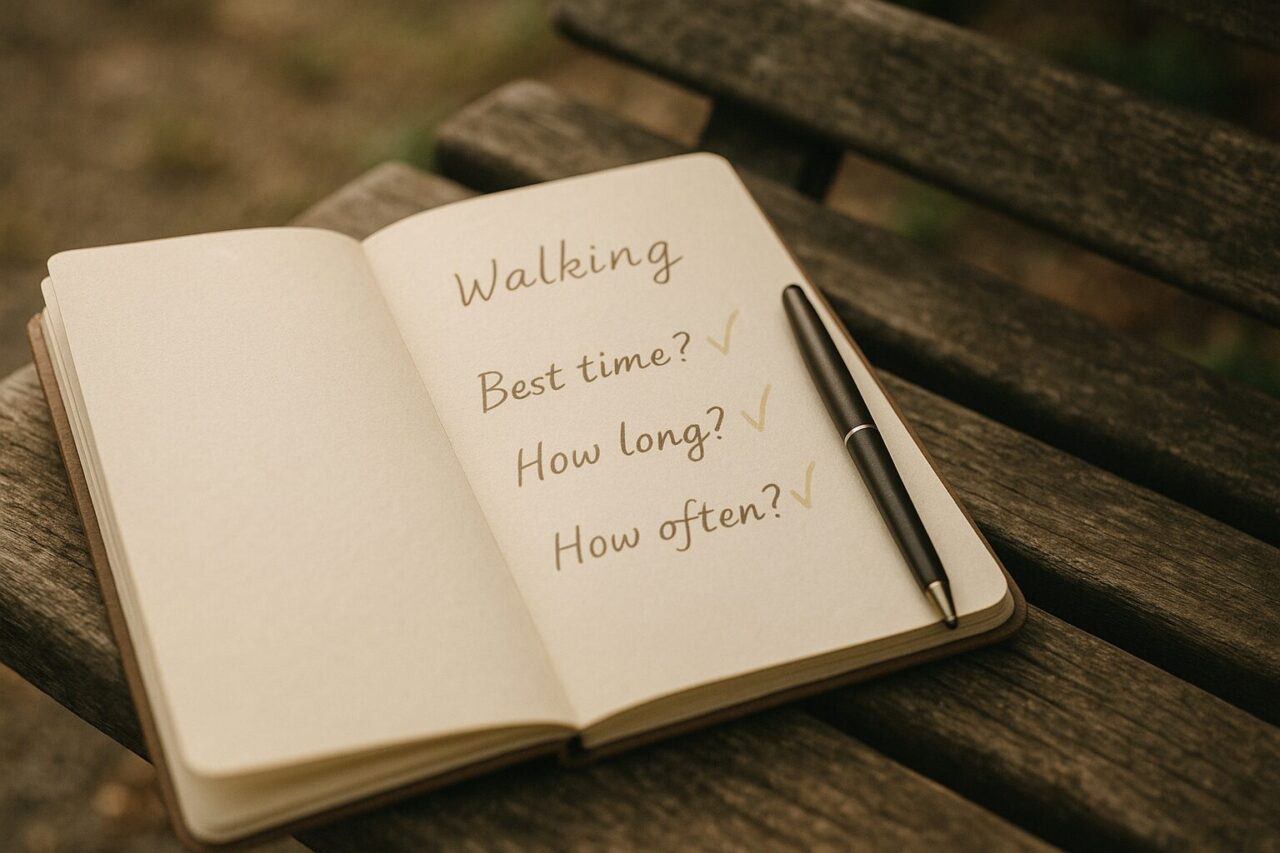 Walking
Best time? ✓
How long? ✓
How often? ✓